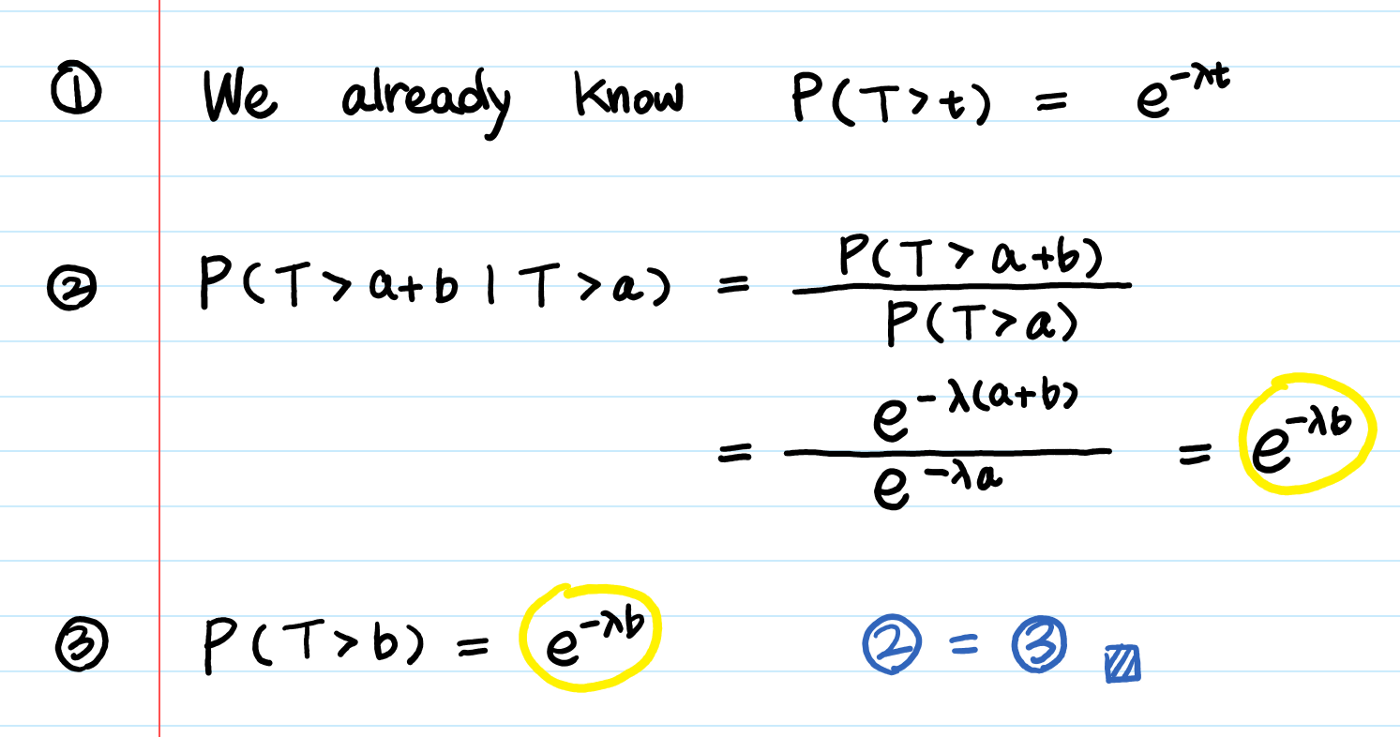 ① We already know P(T>t) = e^{-λt}
② P(T>a+b | T>a) = \frac{P(T>a+b)}{P(T>a)}
= \frac{e^{-λ(a+b)}}{e^{-λa}} = e^{-λb}
③ P(T>b) = e^{-λb} ② = ③ ▨